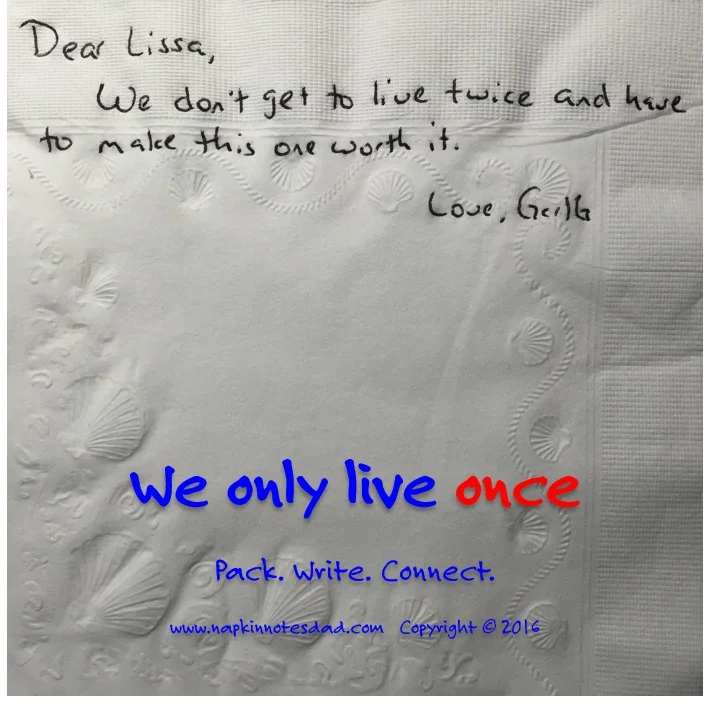 Dear Lissa,
We don't get to live twice and have
to make this one worth it.
Love,
We only live once
Pack. Write. Connect.
www.napkinnotesdad.com Copyright © 2016